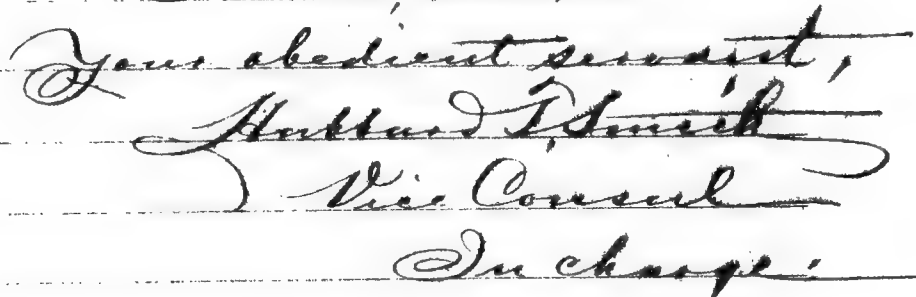 Your obedient servant,
Hubbard T. Smith
Vice Consul
In charge.